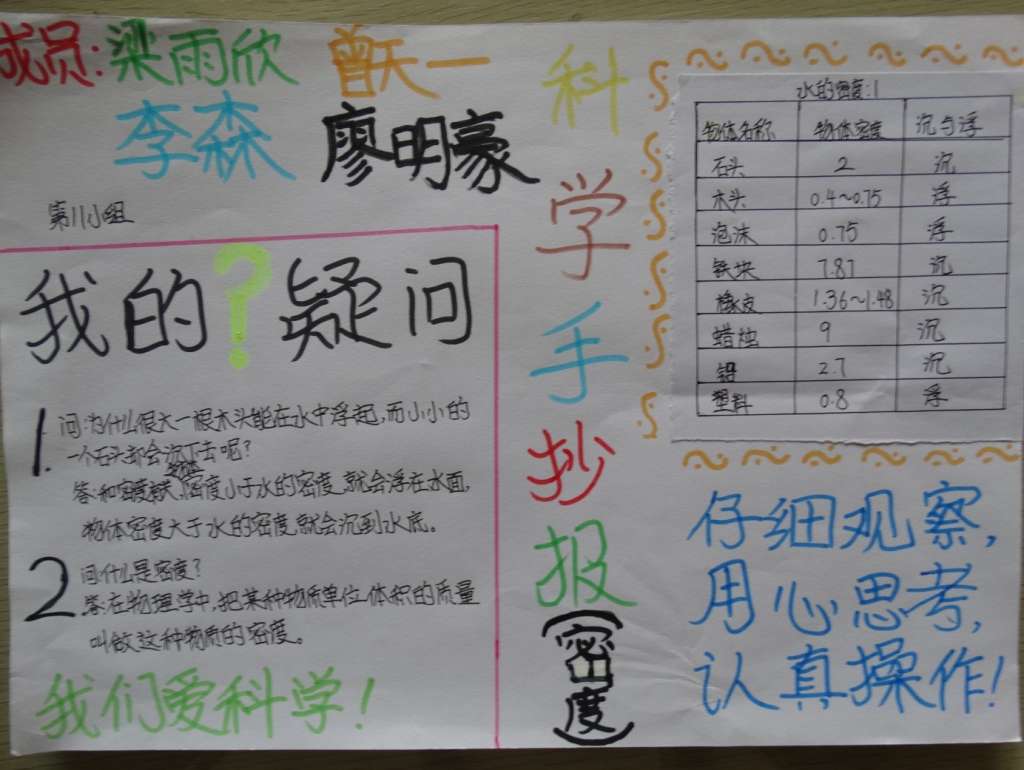 成员:梁雨欣 曾天一
李森 廖明豪
第11小组
我的?疑问
1. 问:为什么很大一根木头能在水中浮起,而小小的
一个石头却会沉下去呢?
答:和密度有关,物体密度小于水的密度,就会浮在水面,
物体密度大于水的密度,就会沉到水底。
2 问:什么是密度?
答:在物理学中,把某种物质单位体积的质量
叫做这种物质的密度。
我们爱科学!
科学手抄报(密度)
水的密度:1
物体名称 物体密度 沉与浮
石头 2 沉
木头 0.4~0.75 浮
泡沫 0.75 浮
铁块 7.87 沉
橡皮 1.36~1.48 沉
蜡烛 9 沉
铝 2.7 沉
塑料 0.8 浮
仔细观察,
用心思考,
认真操作!